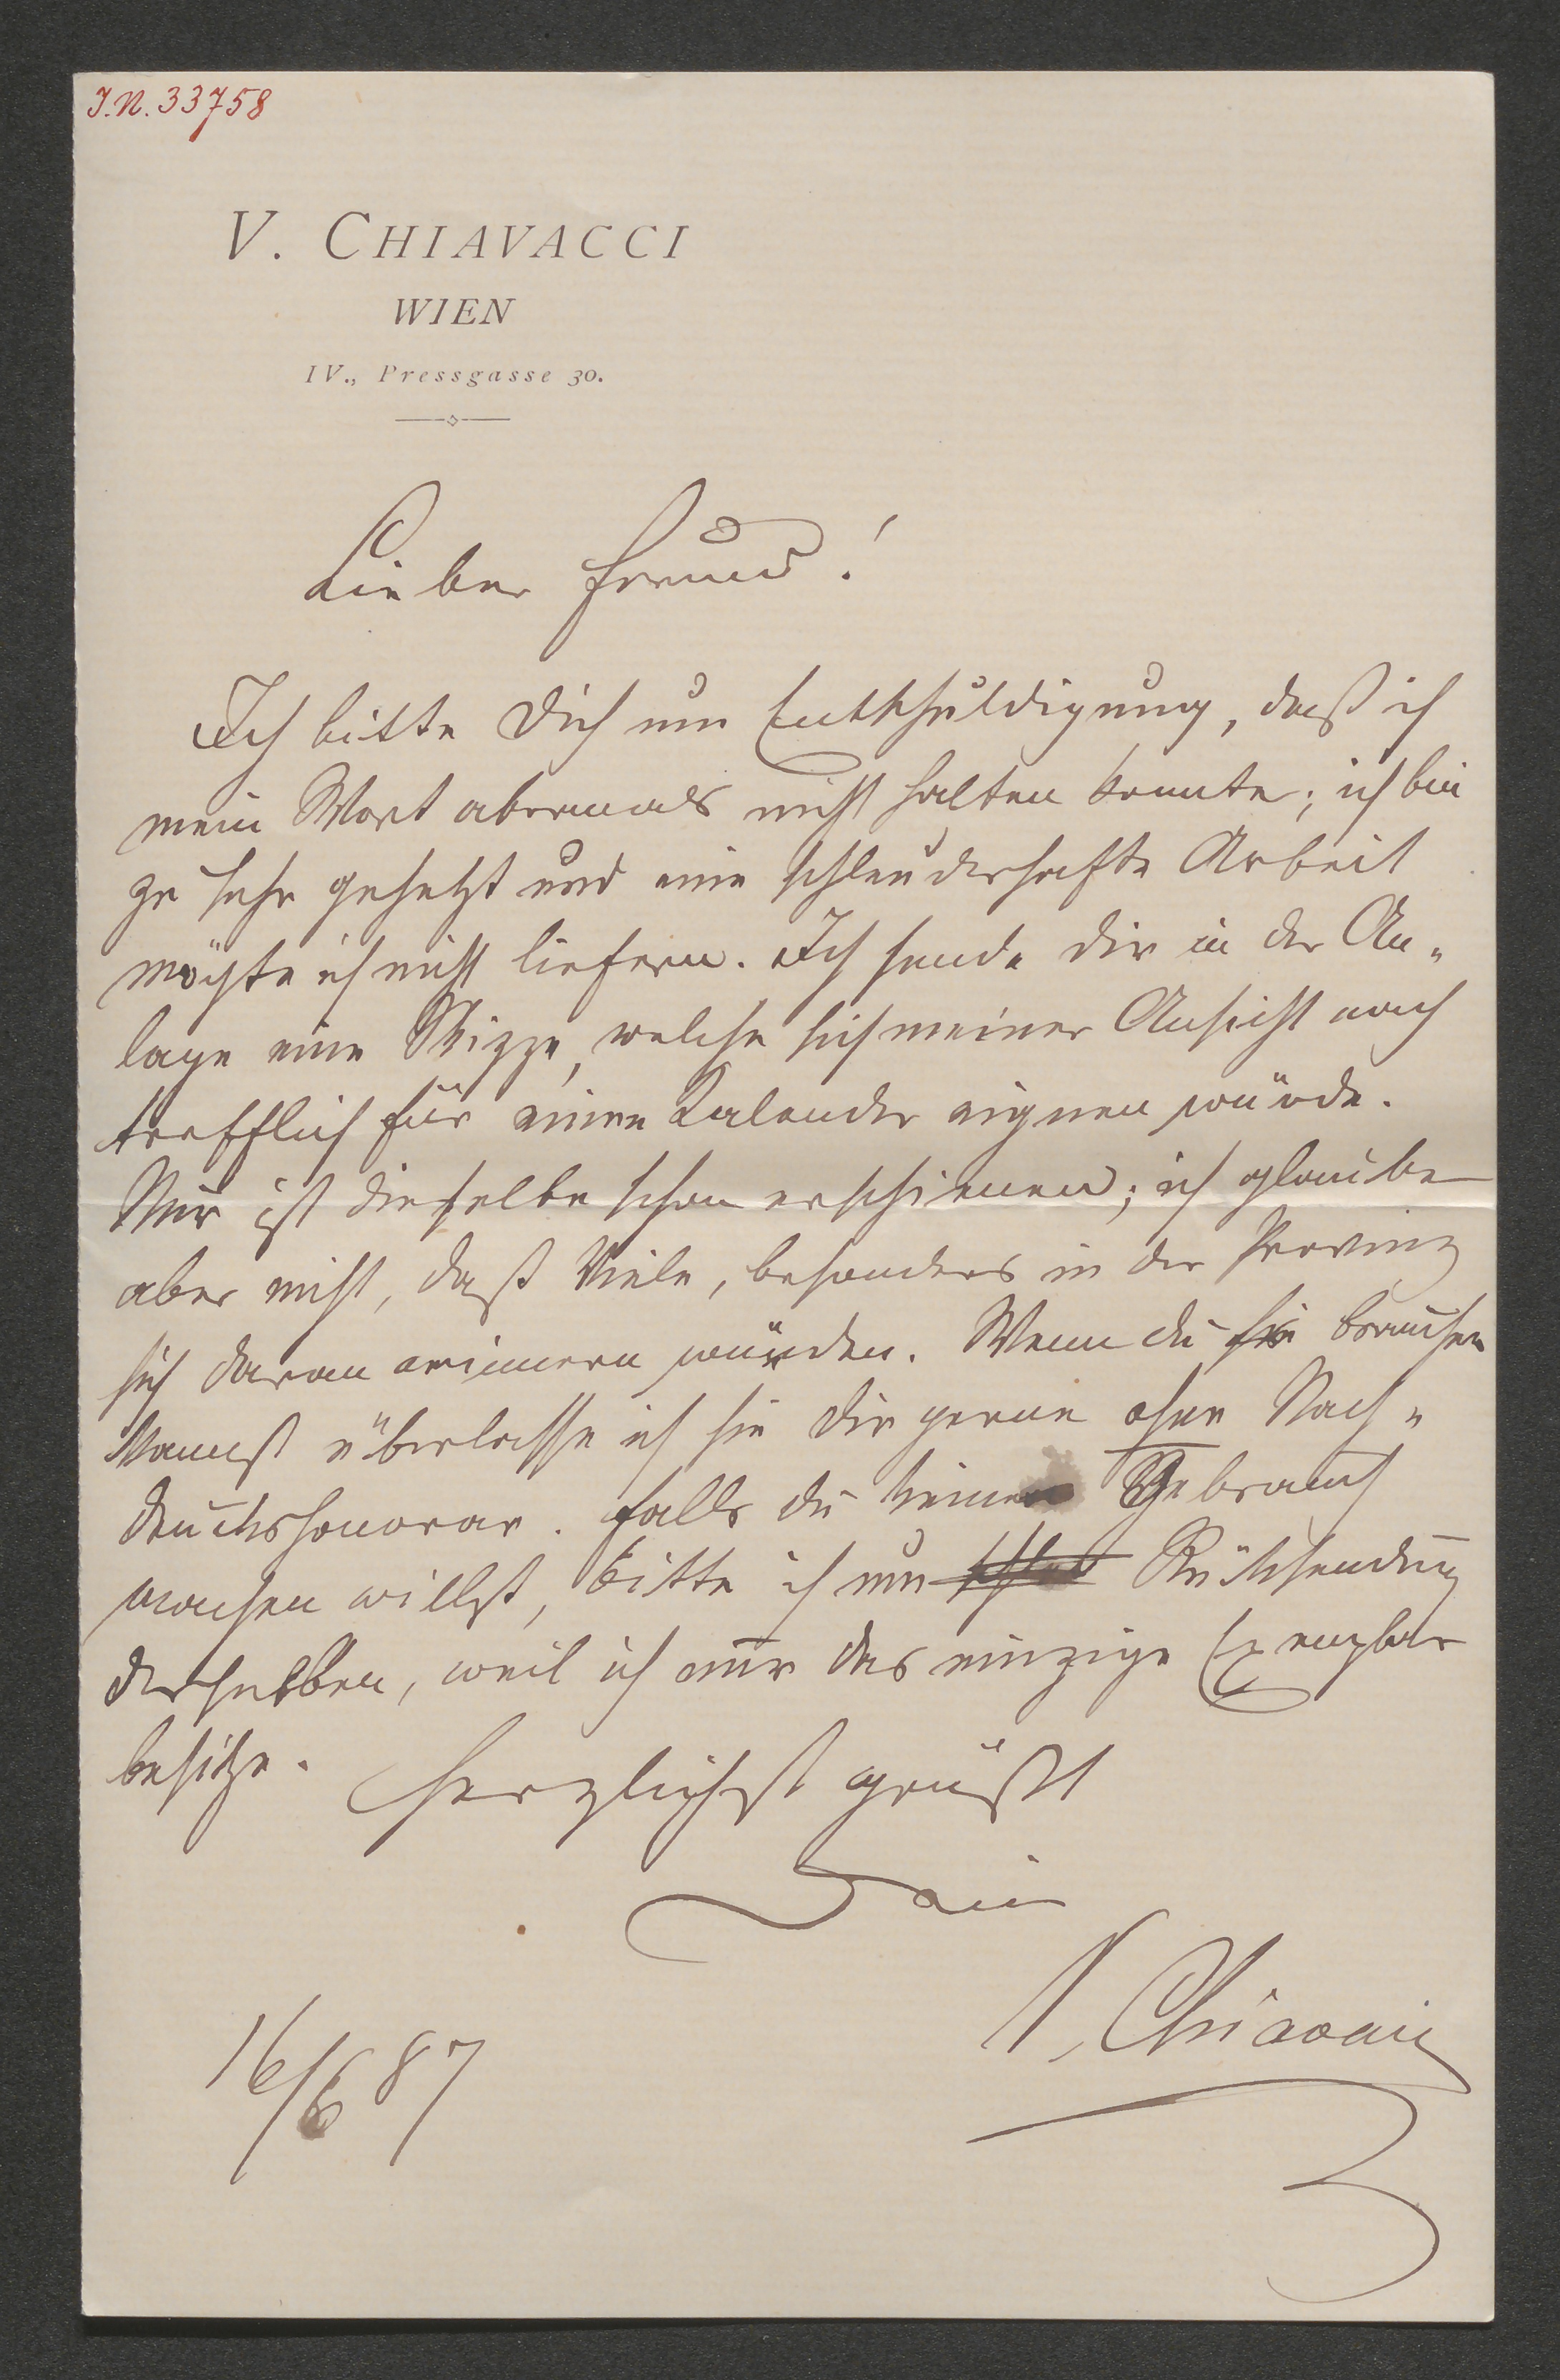 I.N. 33758
V. CHIAVACCI
WIEN
IV., Pressgasse 30.
Lieber Freund!
Ich bitte Dich um Entschuldigung, daß ich
mein Wort abermals nicht halten konnte; ich bin
zu sehr gehetzt und eine schleuderhafte Arbeit
möchte ich nicht liefern. Ich sende Dir in der An-
lage eine Skizze, welche sich meiner Ansicht nach
trefflich für einen Kalender eignen würde.
Nur ist dieselbe schon erschienen; ich glaube
aber nicht, daß Viele, besonders in der Provinz
sich daran erinnern würden. Wenn du sie brauchen
kannst überlasse ich sie Dir gerne ohne Nach-
druckshonorar. Falls du keinen Gebrauch
machen willst, bitte ich um Rücksendung
derselben, weil ich nur das einzige Exemplar
besitze. Herzlichst grüßt
Dein
V. Chiavacci
16/6 87